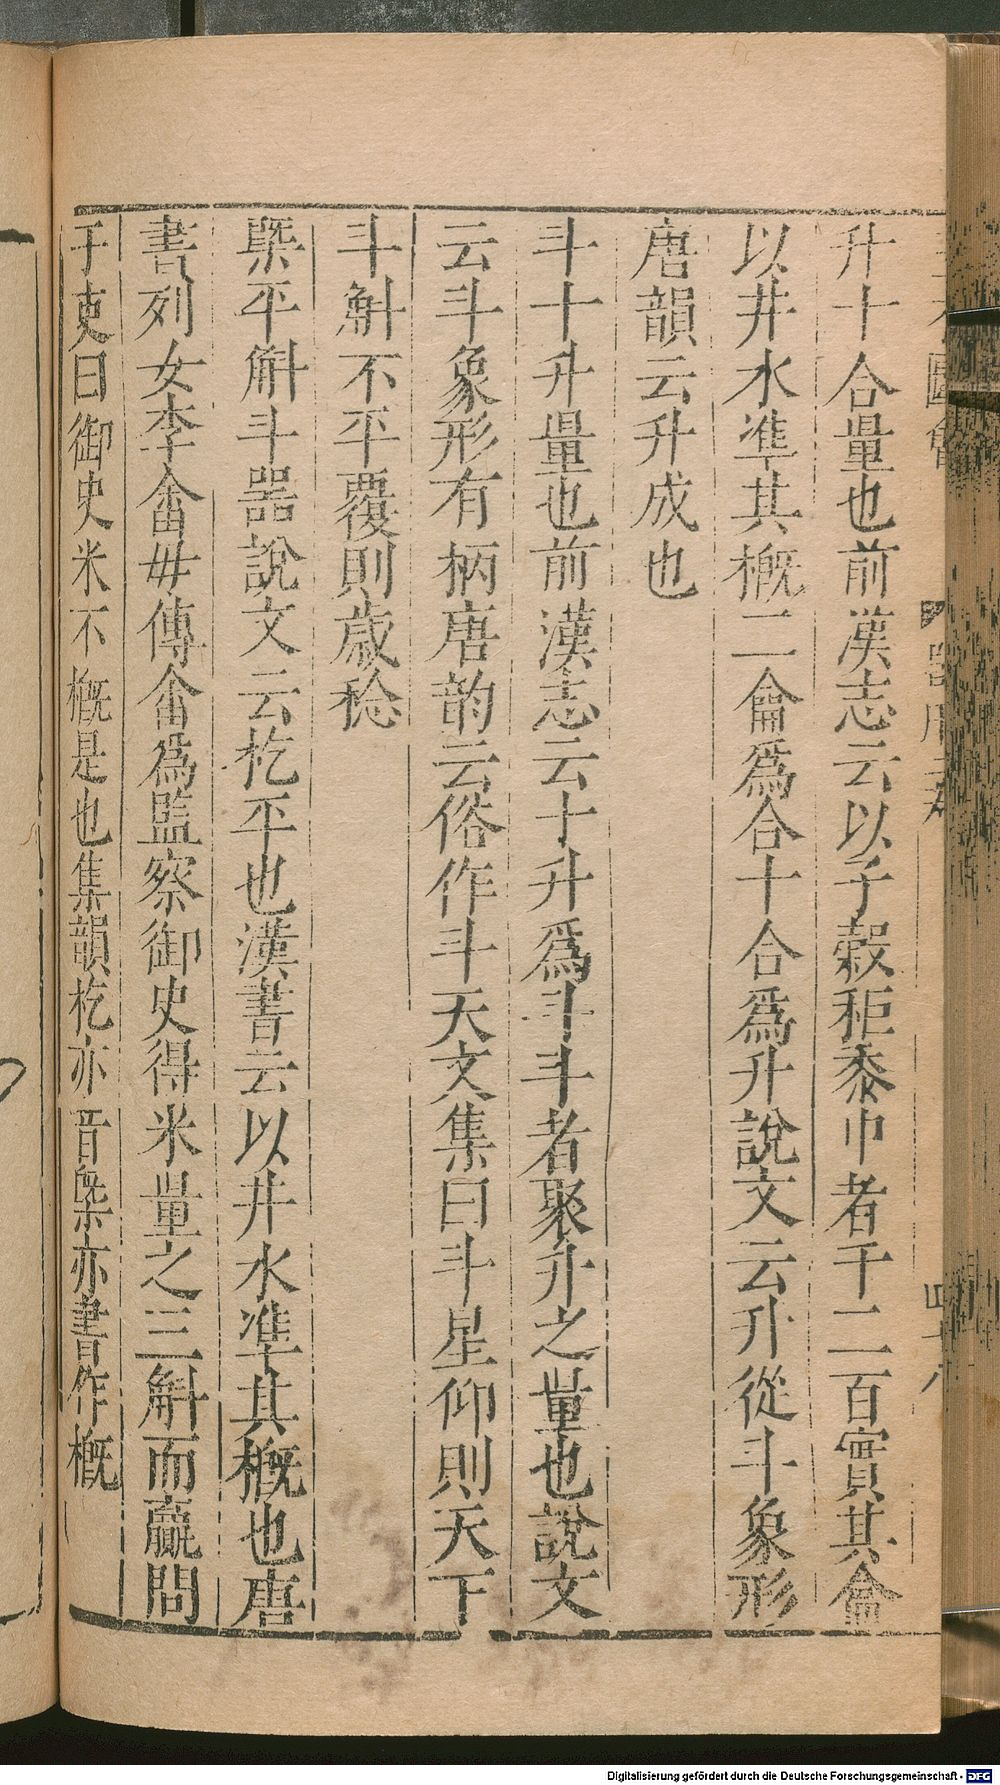 升十合量也前漢志云以子穀秬黍中者千二百實其龠
以井水準其概二龠爲合十合爲升說文云升從斗象形
唐韻云升成也
斗十升量也前漢志云十升爲斗斗者聚升之量也說文
云斗象形有柄唐韵云俗作斗天文集曰斗星仰則天下
斗斛不平覆則歲稔
槩平斛斗器說文云杚平也漢書云以井水準其概也唐
書列女李畬毋傳畬爲監察御史得米量之三斛而贏問
于吏曰御史米不概是也集韻杚亦音槩亦書作概
Digitalisierung gefördert durch die Deutsche Forschungsgemeinschaft - DFG